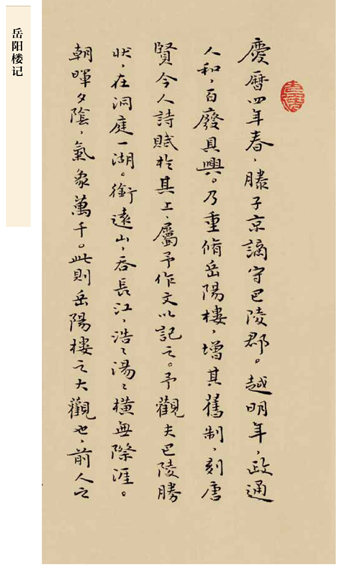 岳阳楼记
慶曆四年春，滕子京謫守巴陵郡。越明年，政通
人和，百廢具興。乃重脩岳陽樓，增其舊制，刻唐
賢今人詩賦於其上，屬予作文以記之。予觀夫巴陵勝
狀，在洞庭一湖。銜遠山，吞長江，浩〻湯〻，橫無際涯。
朝暉夕陰，氣象萬千。此則岳陽樓之大觀也，前人之